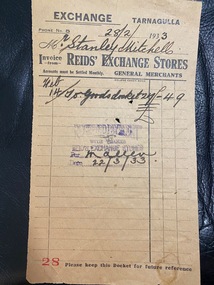 EXCHANGE TARNAGULLA
28/2/1933
Mr Stanley Mitchell
Invoice from REIDS' EXCHANGE STORES
Accounts must be Settled Monthly. GENERAL MERCHANTS
Feb
14 To Goods docket 29/- 4 9
REIDS' EXCHANGE STORES
22/3/33
28 Please keep this Docket for future reference